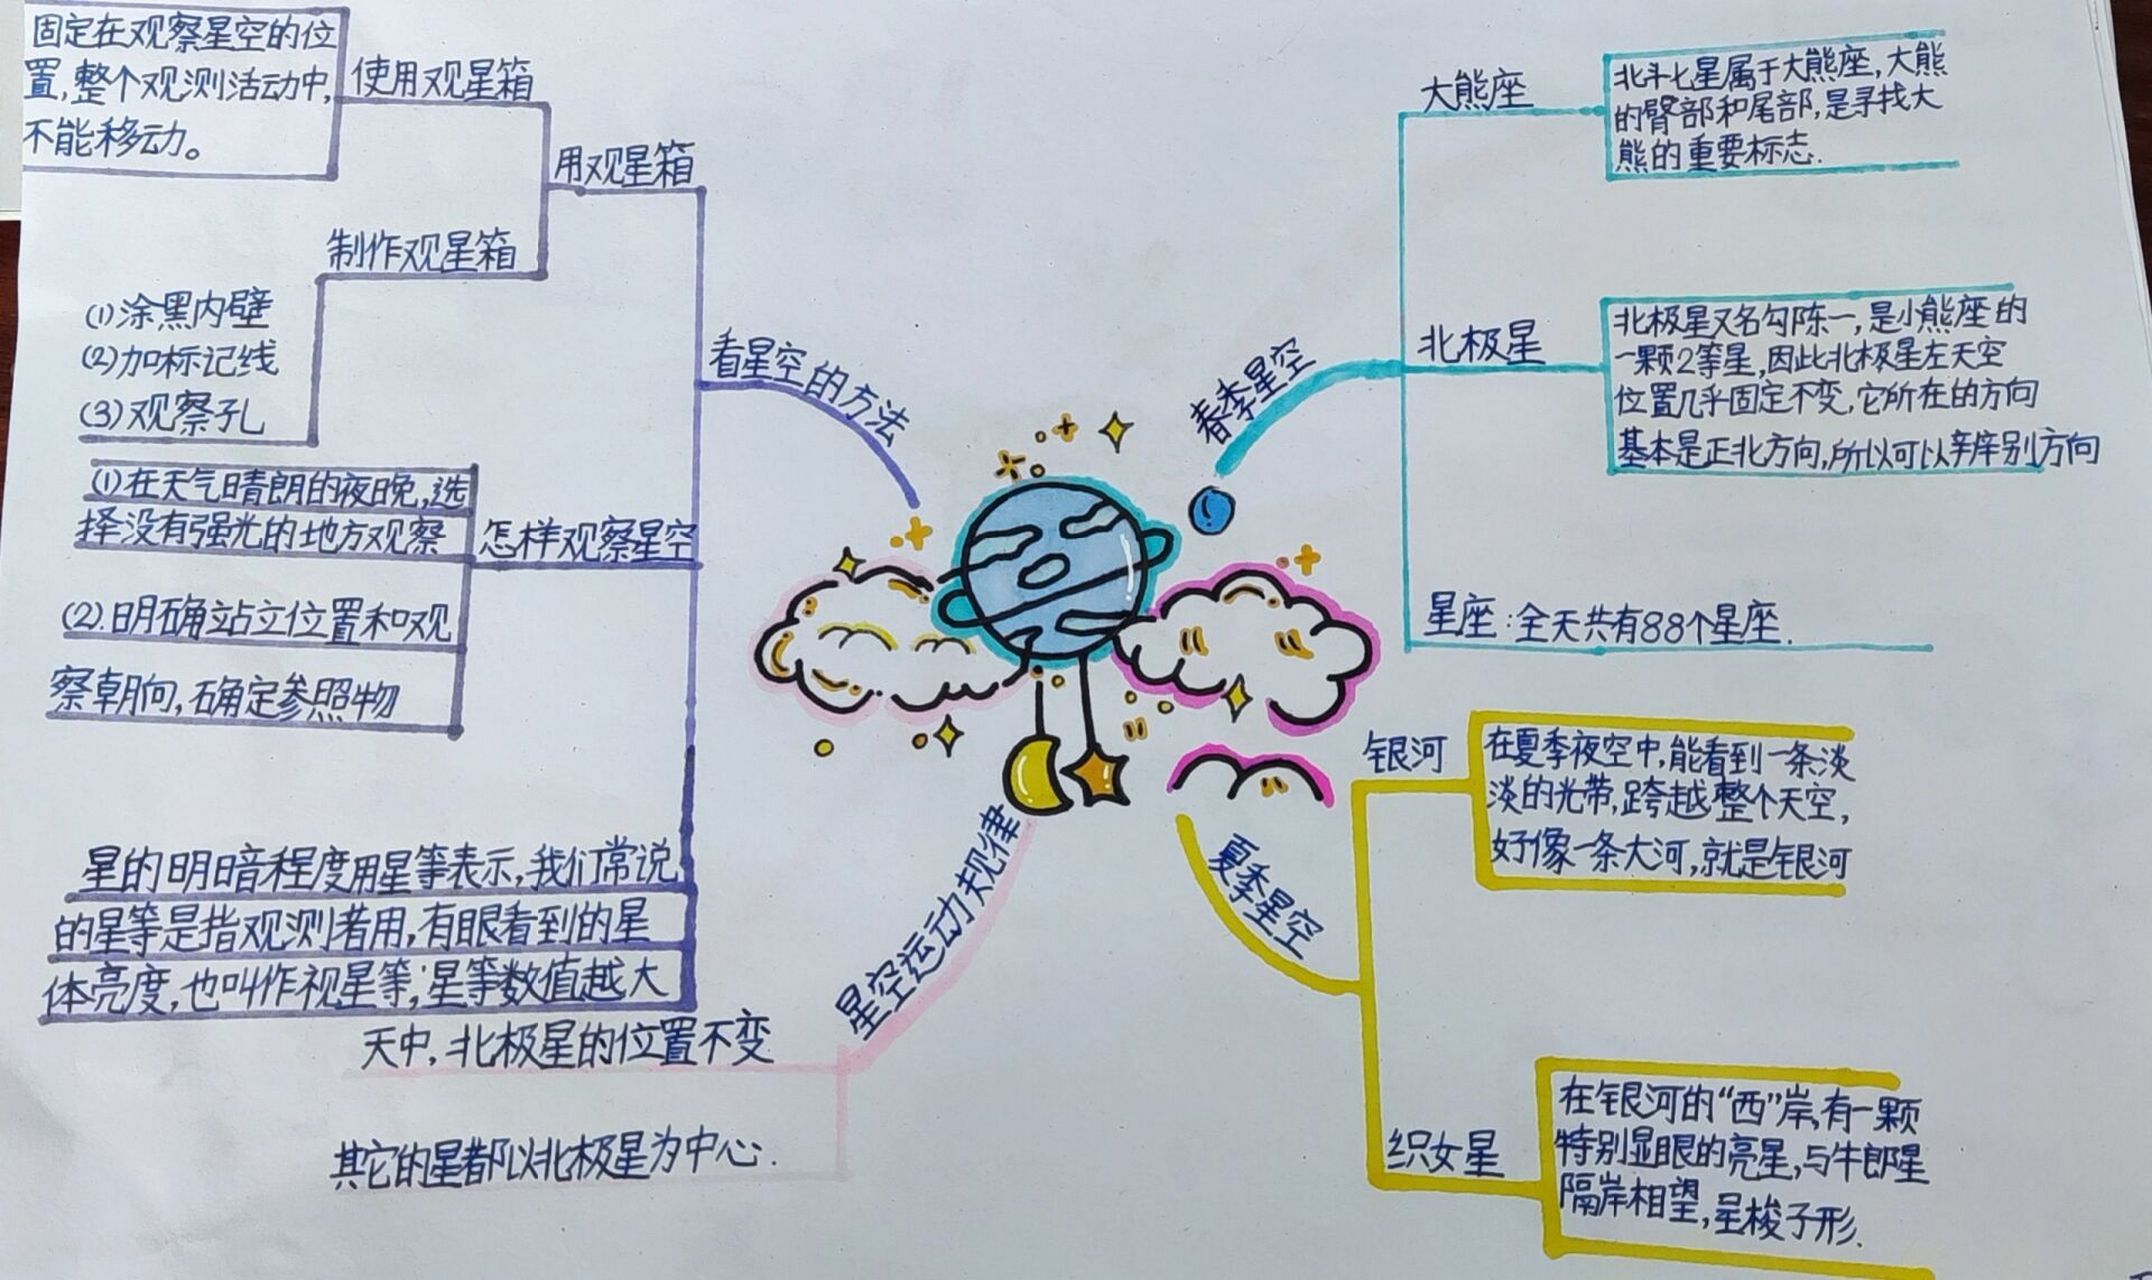 固定在观察星空的位
置,整个观测活动中,
不能移动。
使用观星箱
用观星箱
制作观星箱
(1)涂黑内壁
(2)加标记线
(3)观察孔
看星空的方法
(1)在天气晴朗的夜晚,选
择没有强光的地方观察
怎样观察星空
(2).明确站立位置和观
察朝向,确定参照物
星的明暗程度用星等表示,我们常说
的星等是指观测者用,有眼看到的星
体亮度,也叫作视星等;星等数值越大
星空运动规律
天中,北极星的位置不变
其它的星都以北极星为中心.
春季星空
大熊座
北斗七星属于大熊座,大熊
的臀部和尾部,是寻找大
熊的重要标志.
北极星
北极星又名勾陈一,是小熊座的
一颗2等星,因此北极星左天空
位置几乎固定不变,它所在的方向
基本是正北方向,所以可以辨别方向
星座:全天共有88个星座.
夏季星空
银河
在夏季夜空中,能看到一条淡
淡的光带,跨越整个天空,
好像一条大河,就是银河
织女星
在银河的“西”岸,有一颗
特别显眼的亮星,与牛郎星
隔岸相望,呈梭子形.